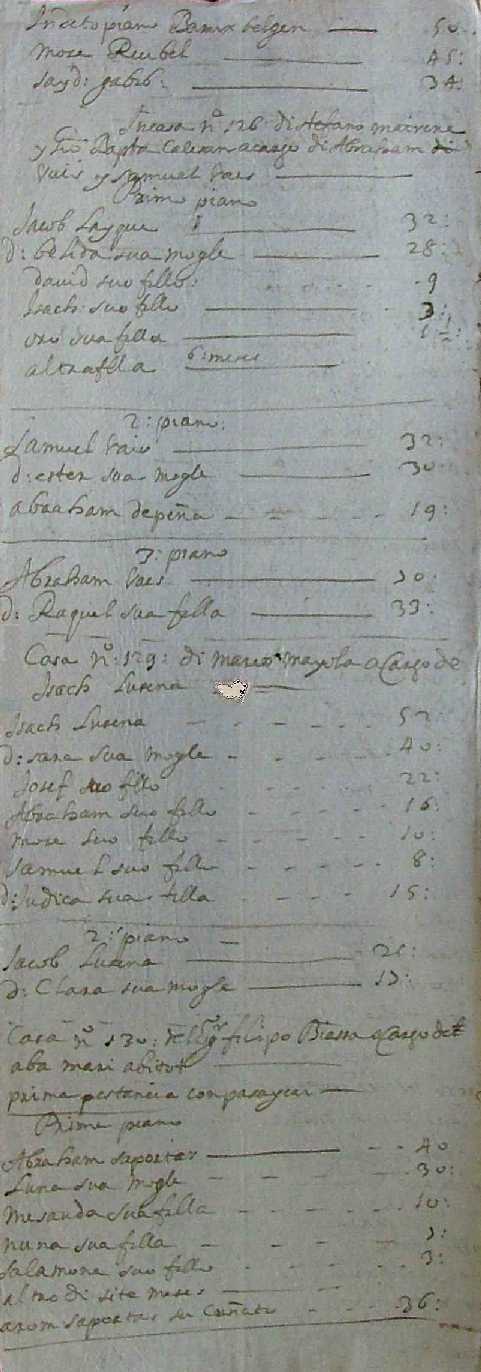 piano 50:
mose Reubel 45:
sayd: gabib: 34:
Incasa nº 126 di stefano
di Abraham di
Vais y samuel vaes
Primo piano
Jacob Lasque 32:
d: belida sua mogle 28:
david suo fillo: 9
Isach suo fillo 3:
oro sua filla 1 ½:
altra filla 6: meses
2: piano:
Samuel Vais 32:
d: ester sua mogle 30:
abraham depeña 19:
3: piano
Abraham Vaes 30:
d: Raquel sua filla 33:
Casa nº: 129: di marco mayola a Cargo de
Isach Lusena
Isach Lusena 52:
d: sara sua mogle 40:
Josef suo fillo 22:
Abraham suo fillo 16:
mose suo fillo 10:
Samuel suo fillo 8:
d: Judica sua filla 15:
2: piano
Jacob Lusena 21:
d: Clara sua mogle 13:
Casa nº 130: filipo Biassa a Cargo de
aba mari abitol
prima pestancia con pasayeri
Primo piano
Abraham saportas 40
Luna sua mogle 30:
Mesauda sua filla 10:
nuna sua filla
salamone suo fillo 3:
altro di site meses
arom saportas su Cuñato 36: